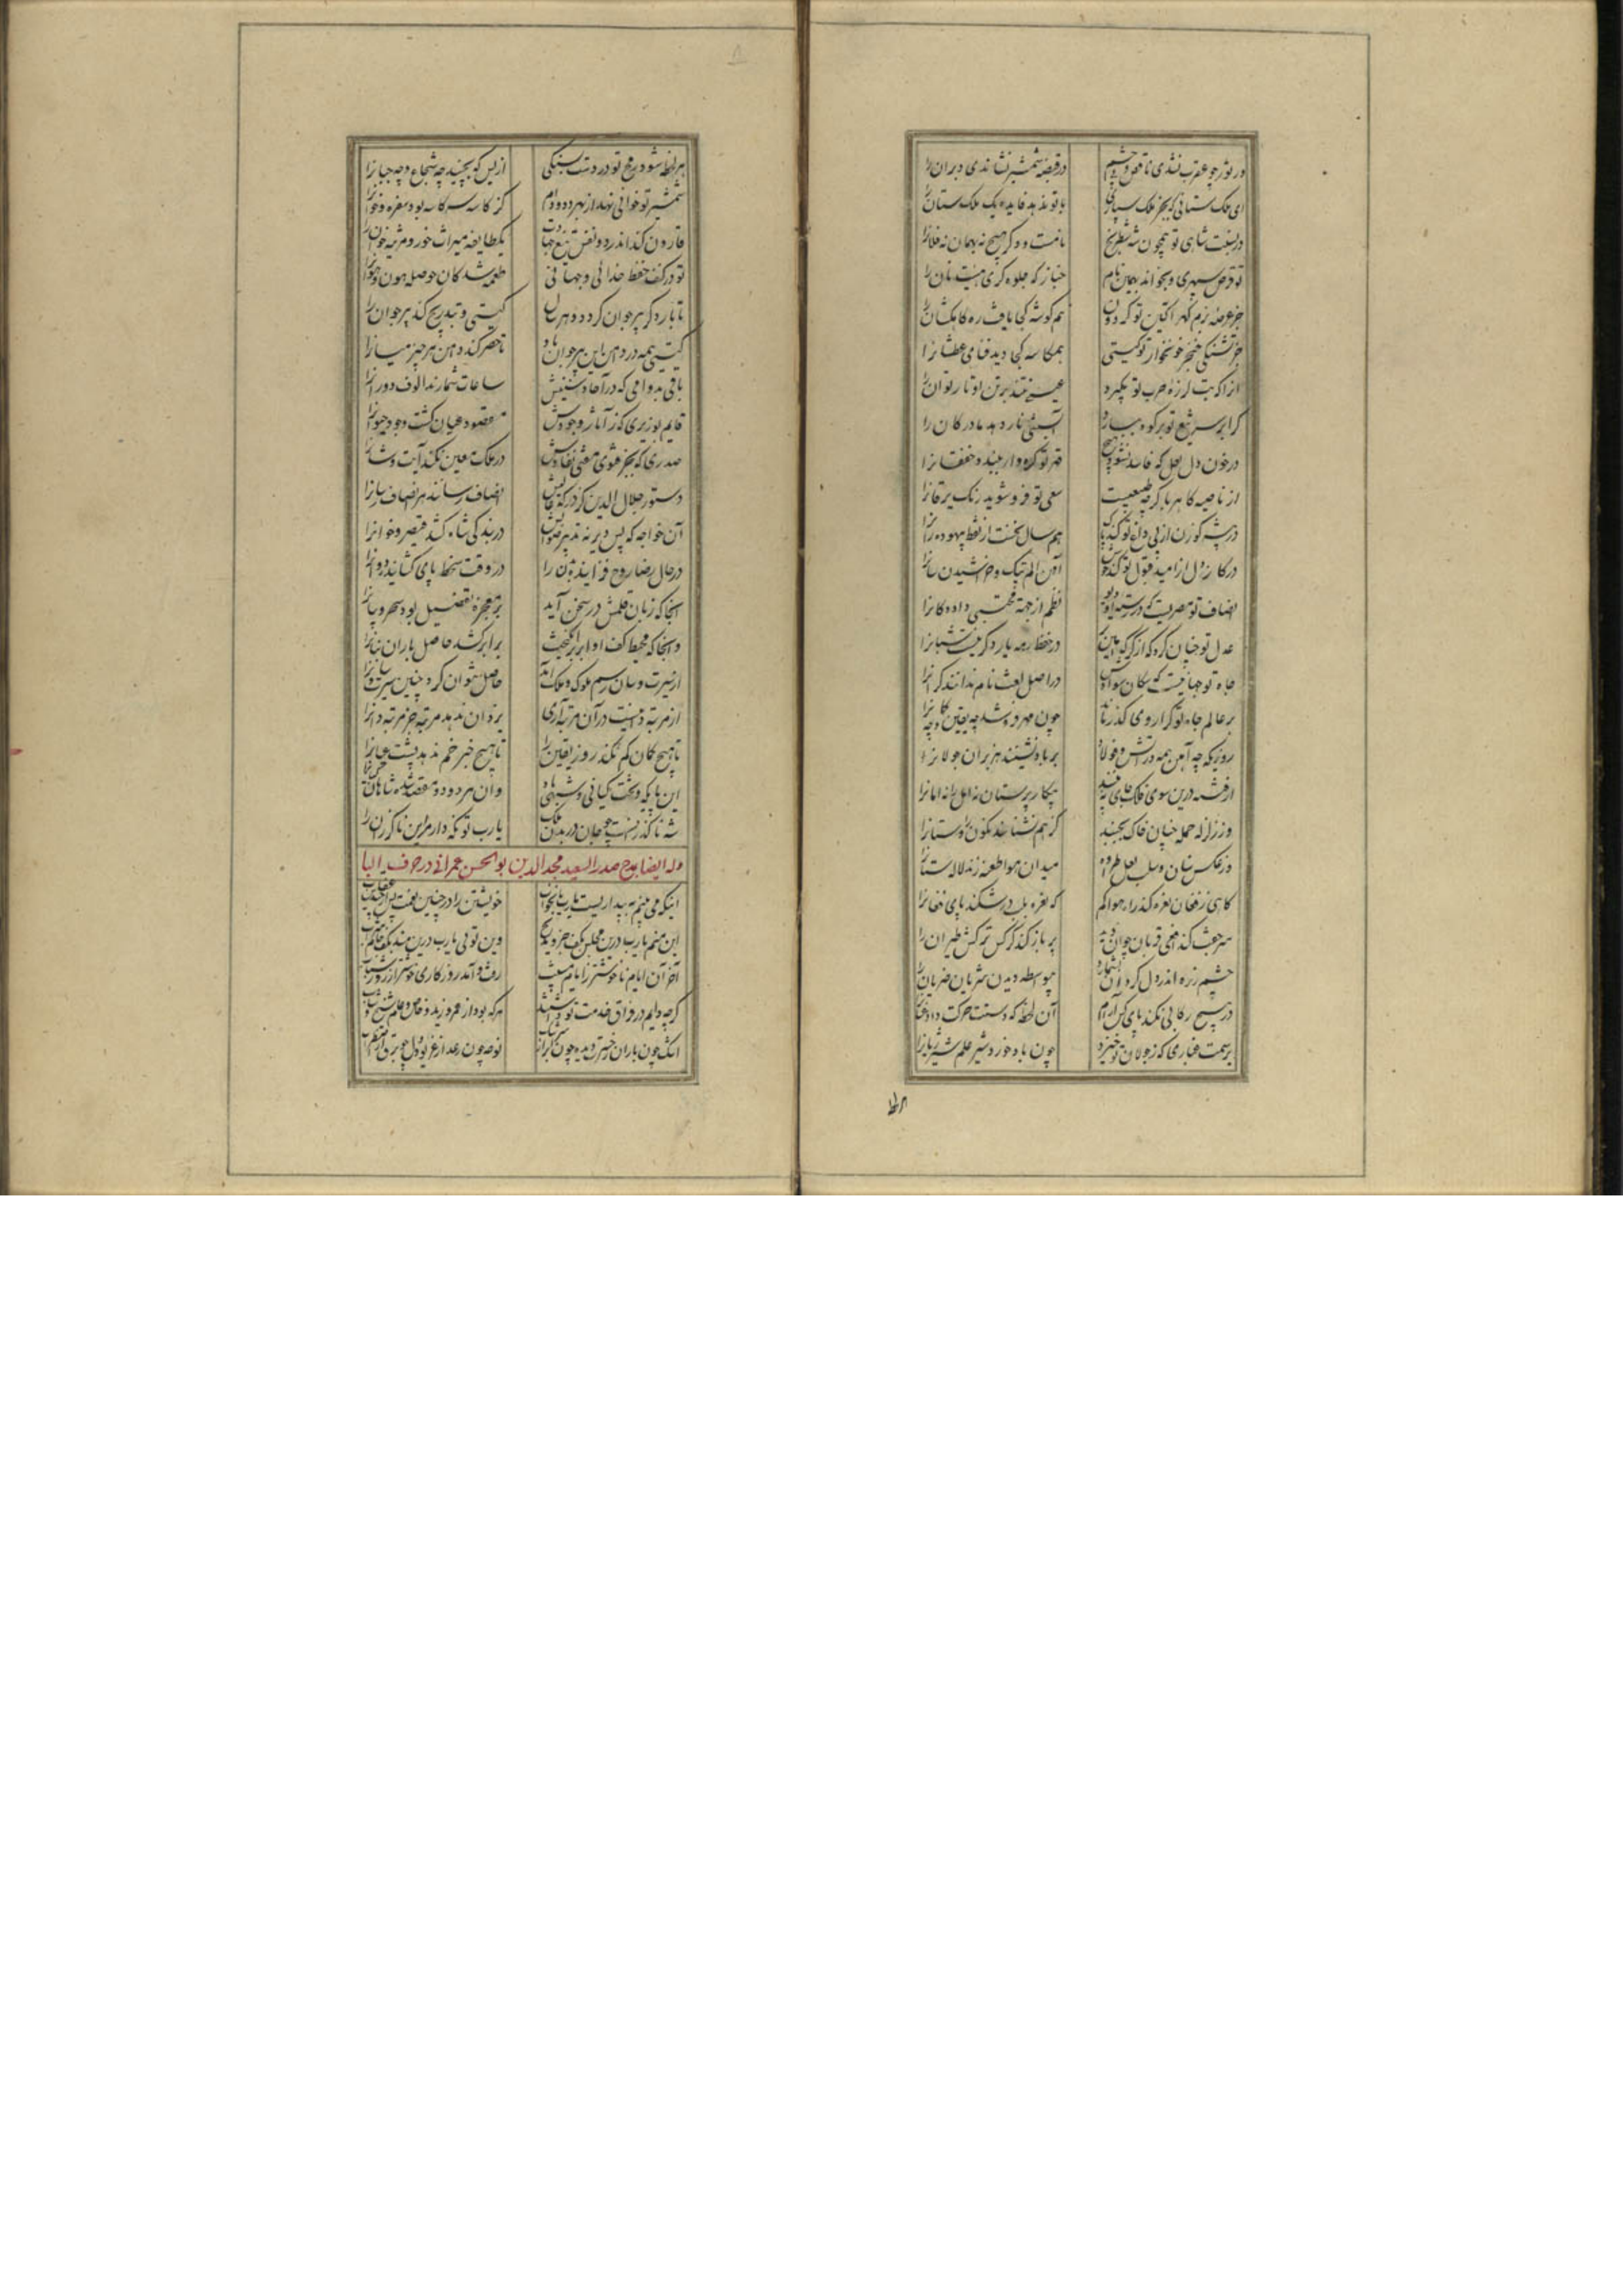 در ثور چو عقرب نشدی ناقص و بی چشم در قبضه شمشیر نشاندی دبران را
ای ملک ستانی که بجز ملک سپاری با تو ندهد فایده یک ملک ستان را
در نسبت شاهی تو همچون شه شطرنج نامست و دگر هیچ نه بهمان نه فلانرا
تو قرص سپهری و بخواند بهمین نام خباز که جلوه گری هیئت نان را
جز عرصه بزم گهر آگین تو گردون هم گوشه کجا یافت ره کاهکشان را
جز تشنگی خنجر خونخوار تو گیتی همکاسه کجا دید فنای عطشانرا
از تب لرزه حرب تو بگیرد عیسی نتند بر تن او تار توان را
گر ابر سر تیغ تو بر کوه ببارد آبستنی نار دهد مادر کان را
در خون دل لعل که فاسد نشود هیچ قهر تو گره وار ببیند خفقانرا
از ناصیه کاهربا گرچه طبیعیست سعی تو فرو شوید رنگ یرقانرا
در بیشه گوزن از پی داغ تو کند پاک هم سال نخست از نقط بیهوده رانرا
در کان ز دل از امید قبول تو کند خوش آهن الم تپک و خراشیدن سانرا
انصاف تو مصریست که در رسته او دیو نظم از جهت محتسبی داد دکانرا
عدل تو چنان کرد که از گرگ امین تر در حفظ رمه یار دگر نیست شبانرا
جاه تو جهانیست که سکان سوادش در اصل لغت نام ندانند کرانرا
بر عالم جاه تو کرا روی گذر ماند چون مهر فروشد چه یقین را چه گمانرا
روزیکه چه آهن همه در آتش و فولاد بر باد نشینند هزبران جولانرا
از فتنه درین سوی فلک جای نبینند پیکار پرستان نه امل را نه امانرا
وز زلزله حمله چنان خاک بجنبد کز هم نشناسند نگون را و ستانرا
وز عکس سنان و سلب لعل طراده میدان هوا طعنه زند لالستانرا
گاهی ز فغان نعره کند راه هوا گم که نعره به لب درشکند پای فغانرا
سر جفت کند افعی قربان چو آن دید پر باز کند کرکس ترکش طیران را
چشم زره اندر دل گردان بشمارد بی واسطه دیدن شریان ضربان را
در هیچ رکابی نکند پای کس آرام آن لحظه که دستت حرکت داد عنانرا
بر سمت غباری که ز جولان تو خیزد چون باد خورد شیر علم شیر ژیانرا
هر لحظه
هر لحظه شود رمح تو در دست سبکی از بس که بچینند چه شجاع و چه جبانرا
شمشیر تو خوانی نهد از بهر دد و دام کز کاسه سر کاسه بود سفره و خوانرا
قارون کند اندر دو نفس تیغ جهادت یکطایفه میراث خور و مرثیه خوانرا
تو در کنف حفظ خدائی و جهانی طعمه شدگان حوصله هون و هوانرا
تا بار دگر پیر جوان گردد و هر سال گیتی و بتدریج کند پیر جوان را
گیتی همه در دامن این پیر جوان باد تا حصر کند دامن هر چیز میانرا
باقی بدوامی که در آحاد سنینش ساعات شمارند الوف دورانرا
قایم بوزیری که ز آثار وجودش مقصود عیان گشت وجود حیوانرا
صدری که بجز فتوی مفتی نفاذش در ملک معین نکند آیت و شانرا
دستور جلال الدین کز درگه عالیش انصاف رسانند هر انصاف رسانرا
آن خواجه که بس دیر نه تدبیر صوابش در بندگی شاه کشد قیصر و خانرا
در حال رضا روح فزاینده بدن را در وقت سخط پای گشاینده روانرا
آنجا که زبان قلمش در سخن آید بر معجزه تفضیل بود سحر و بیانرا
و آنجا که محیط کف او ابر برانگیخت بر ابر کشد حاصل باران بنانرا
از سیرت و سان رسم ملوک و ملک آمد حاصل نتوان کرد چنین سیرت و سانرا
از مرتبه دانیست در آن مرتبه آری یزدان ندهد مرتبه جز مرتبه دانرا
تا هیچ گمان کم نکند روز یقین را تا هیچ خبر خم ندهد پشت عیانرا
این پایگه و تخت کیانی و شهی باد وان هر دو دو مقصد شده شاهان جهانرا
شه ناگذرنست چو جان در بدن ملک یارب تو نگه دار مر این ناگذران را
وله ایضا بمدح صدر السعید مجد الدین بوالحسن عمرانی در حرف البا
اینکه می بینم به بیداریست یارب یا بخواب خویشتن را در چنین نعمت پس از چندین عذاب
این منم یارب درین مجلس بکف جزو مدیح وین تویی یارب درین مسند بکف جام شراب
آخر آن ایام ناخوشتر ز ایام مشیب رفت و آمد روزگاری خوشتر از روز شباب
گرچه دایم در فراق خدمت تو داشتند هرکه بود از عمرو و زید و خاص و عام و شیخ و شاب
اشک چون باران ز خیره دیده چون ابر سرشک نوحه چون رعد از غریو و دل چو برق از اضطراب